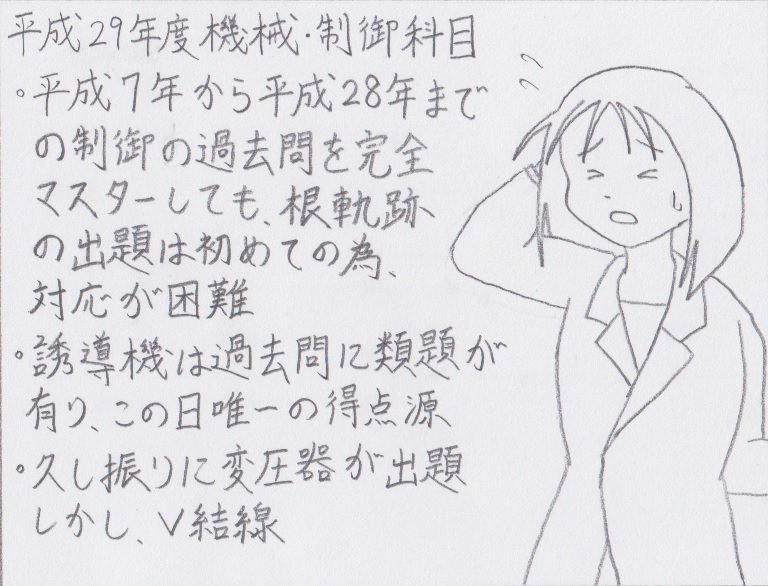 平成29年度機械・制御科目
。平成7年から平成28年まで
の制御の過去問を完全
マスターしても、根軌跡
の出題は初めての為、
対応が困難
。誘導機は過去問に類題が
有り、この日唯一の得点源
。久し振りに変圧器が出題
しかし、V結線